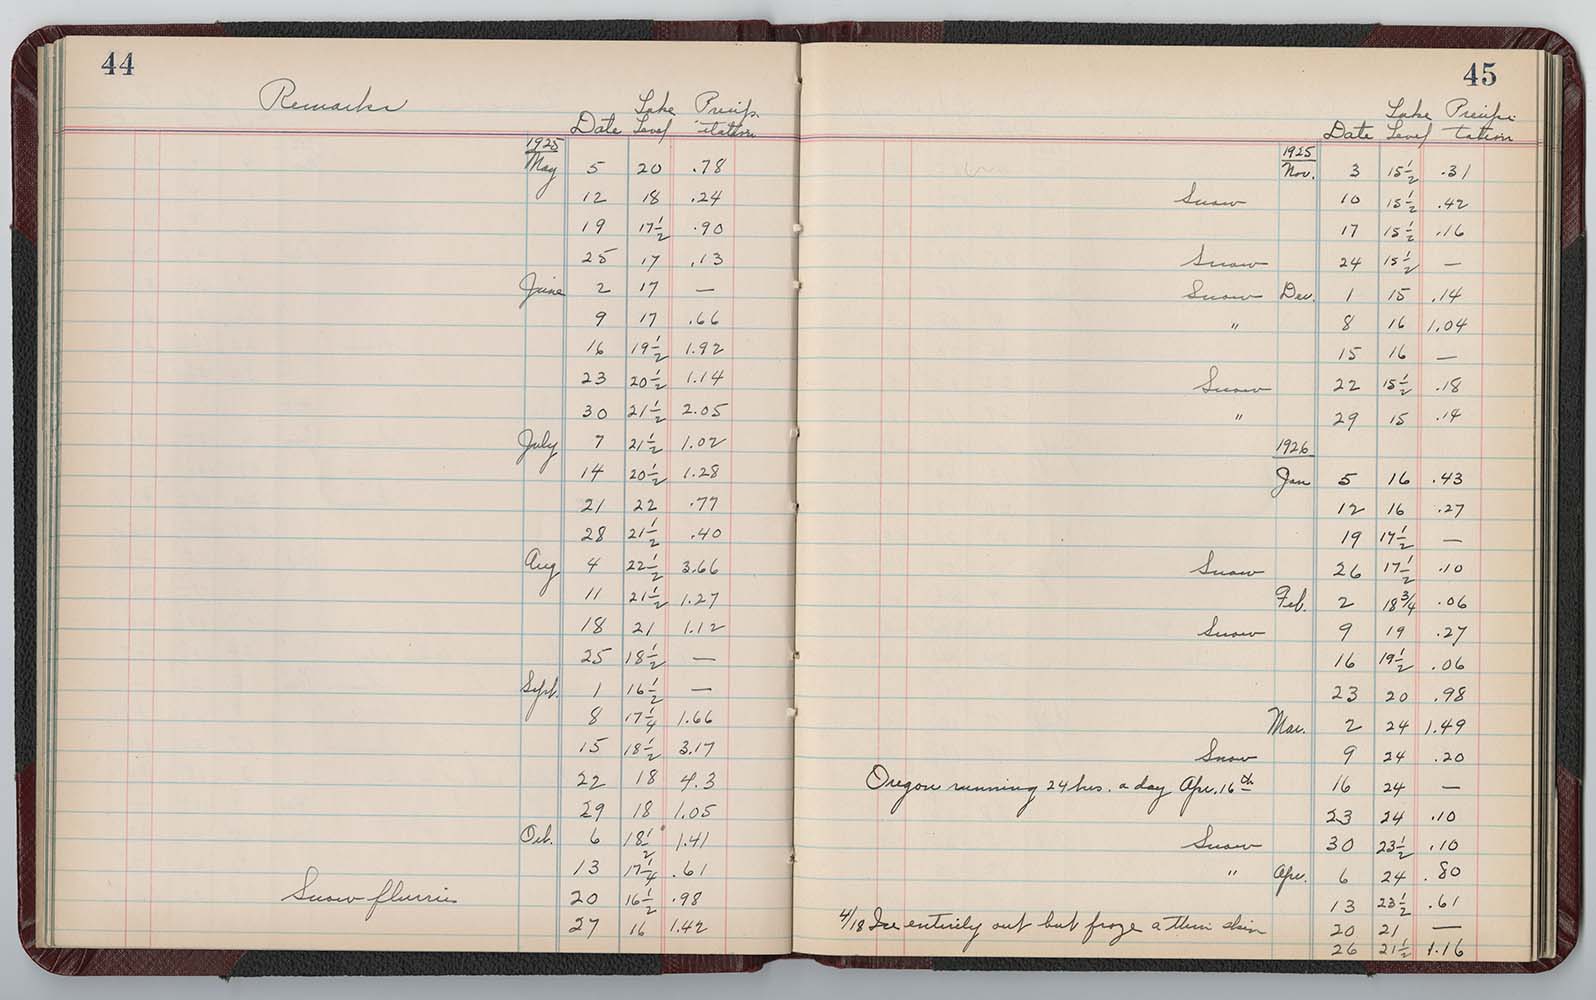 44
Remarks Date Lake Level Precip-itation
1925
May 5 20 .78
12 18 .24
19 17 1/2 .90
25 17 .13
June 2 17 —
9 17 .66
16 19 1/2 1.92
23 20 1/2 1.14
30 21 1/2 2.05
July 7 21 1/2 1.02
14 20 1/2 1.28
21 22 .77
28 21 1/2 .40
Aug 4 22 1/2 3.66
11 21 1/2 1.27
18 21 1.12
25 18 1/2 —
Sept. 1 16 1/2 —
8 17 1/4 1.66
15 18 1/2 3.17
22 18 4.3
29 18 1.05
Oct. 6 18 1/2 1.41
13 17 1/4 .61
Snow flurries 20 16 1/2 .98
27 16 1.42
45
Date Lake Level Precipitation
1925
Nov. 3 15 1/2 .31
Snow 10 15 1/2 .42
17 15 1/2 .16
Snow 24 15 1/2 —
Snow Dec. 1 15 .14
" 8 16 1.04
15 16 —
Snow 22 15 1/2 .18
" 29 15 .14
1926
Jan 5 16 .43
12 16 .27
19 17 1/2 —
Snow 26 17 1/2 .10
Feb. 2 18 3/4 .06
Snow 9 19 .27
16 19 1/2 .06
23 20 .98
Mar. 2 24 1.49
Snow 9 24 .20
Oregon running 24 hrs. a day Apr. 16th 16 24 —
23 24 .10
Snow 30 23 1/2 .10
" Apr. 6 24 .80
13 23 1/2 .61
4/18 Ice entirely out but froze a thin skin 20 21 —
26 21 1/2 1.16